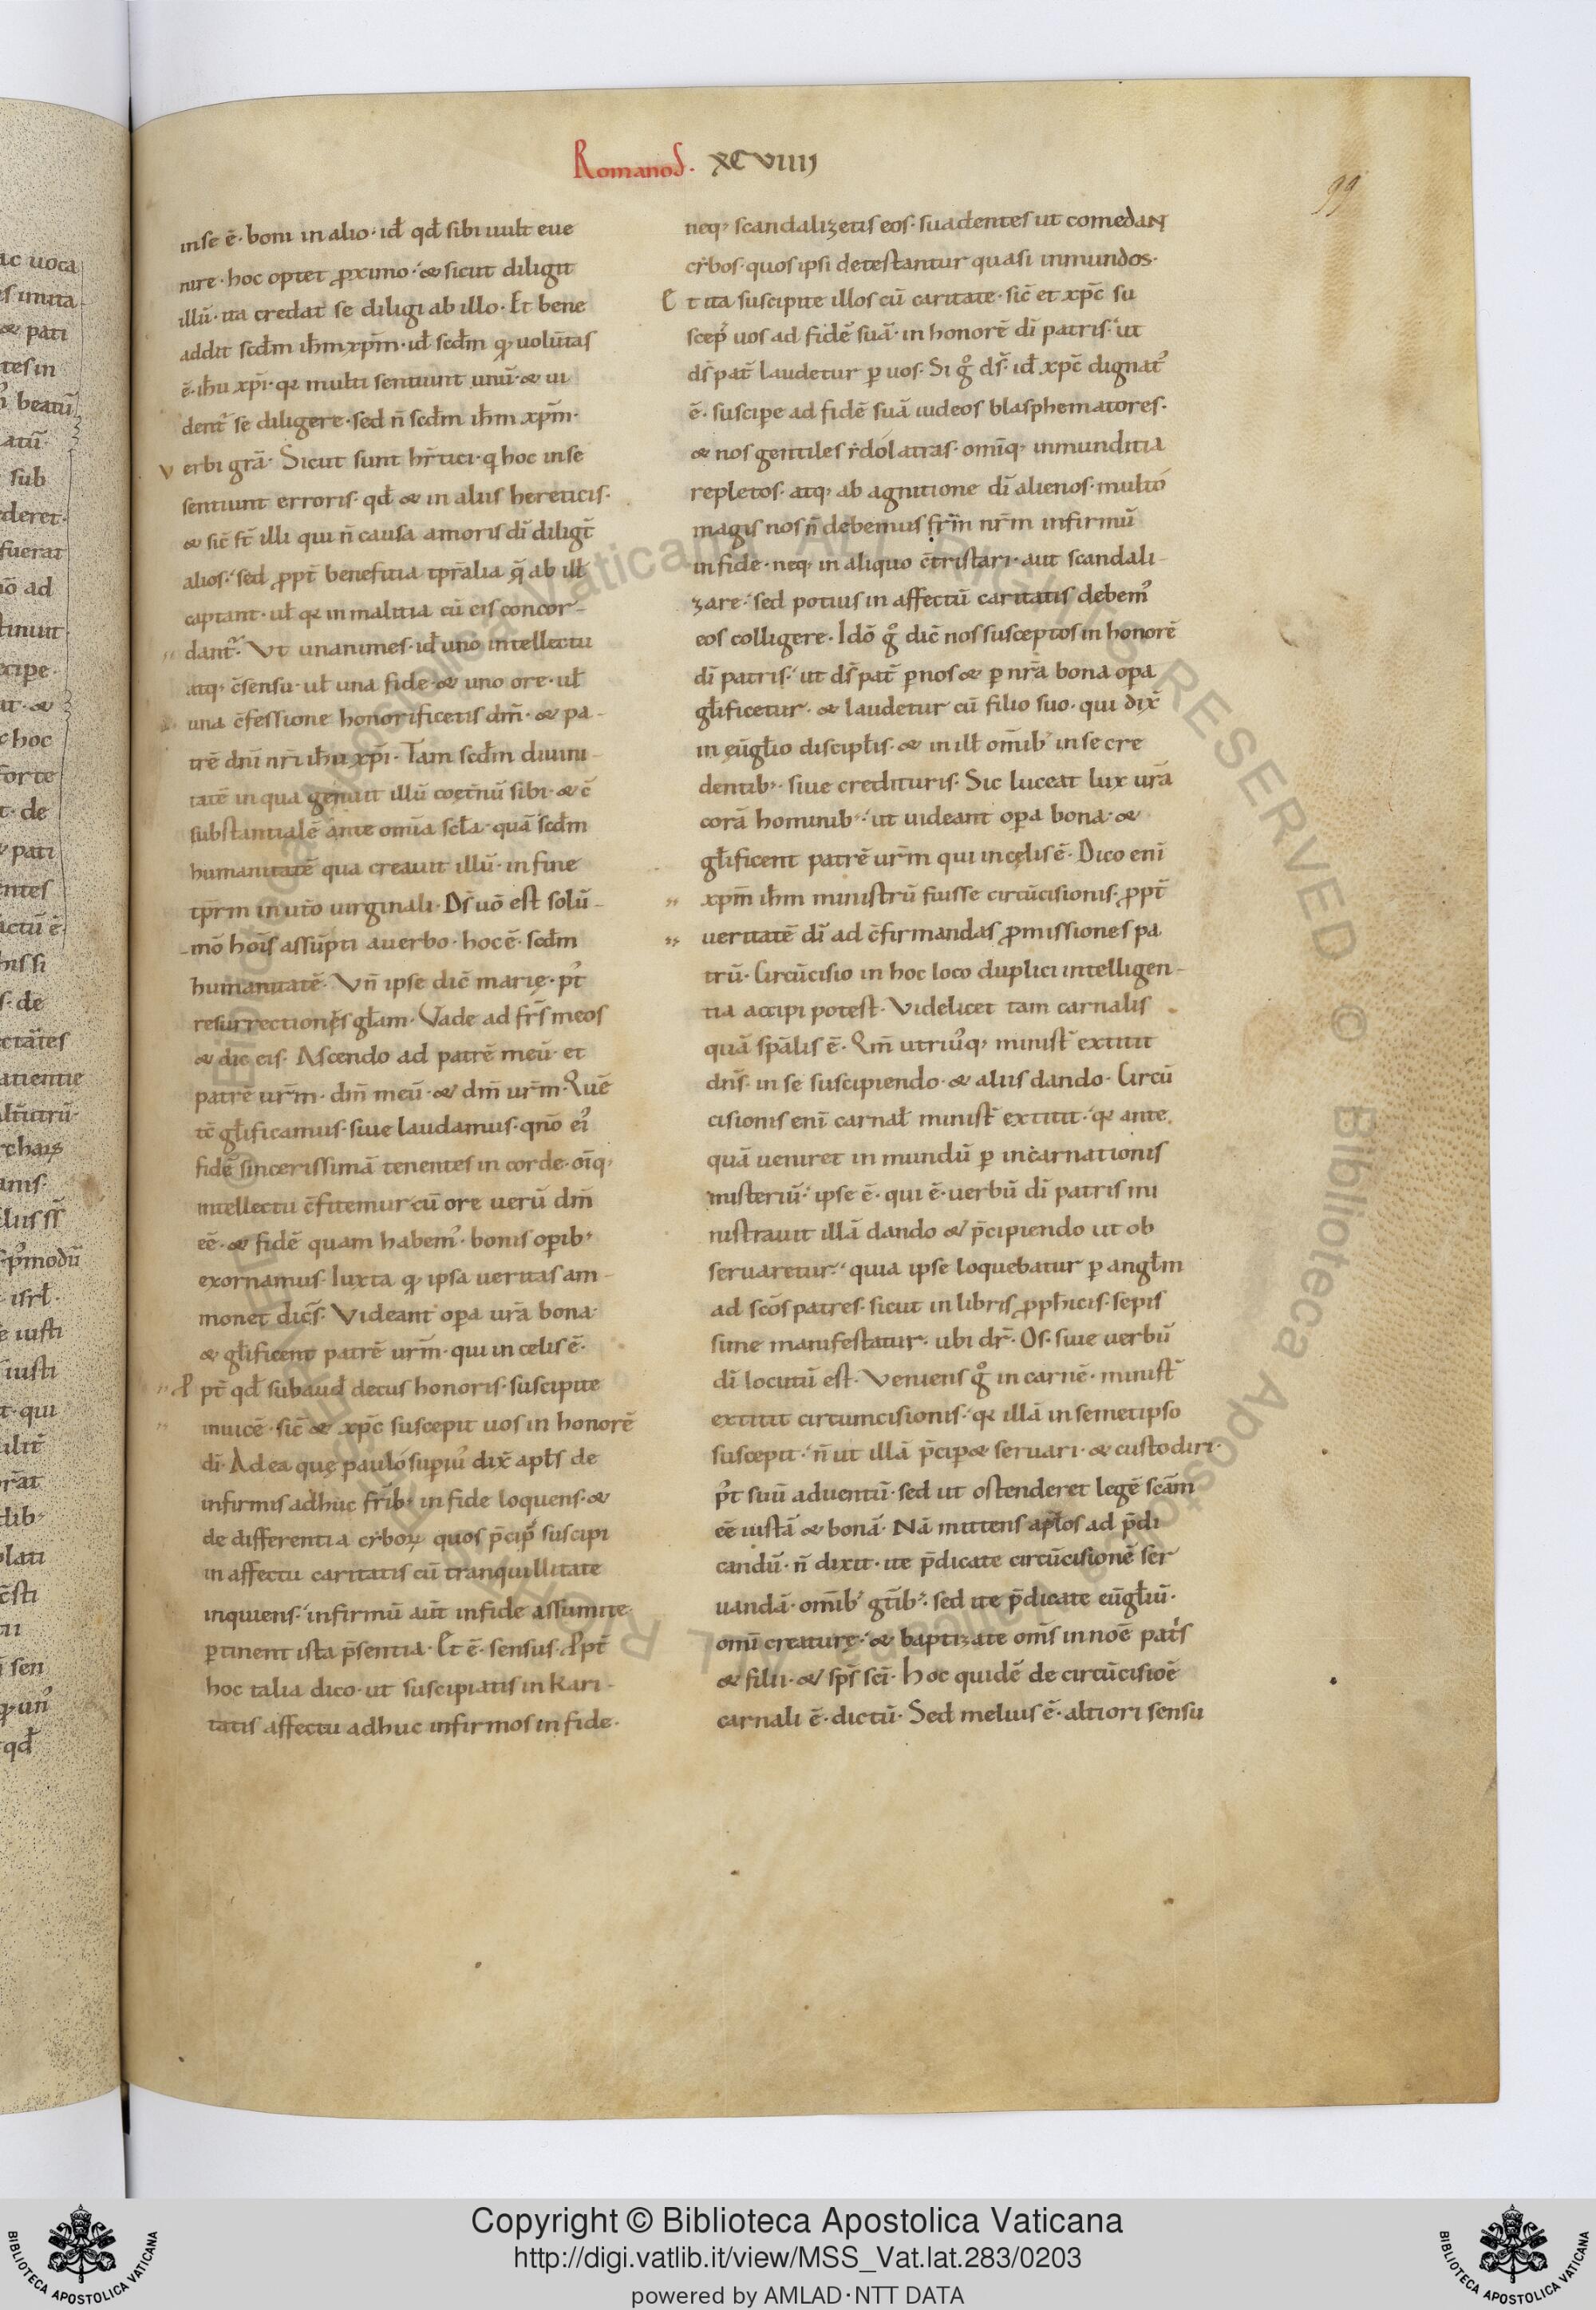 Romanos. XCVIIIJ
99
in se ē· boni in alio· id̄ qd̄ sibi uult eue
nire· hoc optet ꝓximo· & sicut diligit
illū· ita credat se diligi ab illo· Et bene
addit scd̄m ih̄m xp̄m· id̄ scd̄m qꝫ uolūtas
ē· ih̄u xp̄i· qꝫ multi sentiunt unū· & ui
dent᷑ se diligere· sed n̄ scd̄m ih̄m xp̄m·
Verbi grā· Sicut sunt hr̄tici· q hoc in se
sentiunt erroris· qd̄ & in aliis hereticis·
& sic̄ st̄ illi qui n̄ causa amoris dī diligt̄
alios· sed ꝓpt̄ benefitia tp̄ralia q̄ ab ill̄
captant· ul̄ qꝫ in malitia cū eis concor-
dant᷑. Vt unanimes· id̄ uno intellectu
atqꝫ c̄sensu· ul̄ una fide· & uno ore· ul̄
una c̄fessione honorificetis dm̄· & pa-
trē dnī nr̄i ih̄u xp̄i· Tam scd̄m diuini-
tatē in qua genuit illū coet̄nū sibi· & c̄
substantialē ante omīa scl̄a· quā scd̄m
humanitatē qua creauit illū· in fine
tp̄rm in ut̄o uirginali· Ds̄ uō est solū-
mō hoīs assūpti a uerbo· hoc ē· scd̄m
humanitatē· Vn̄ ipse dic̄ marię· pꝰt
resurrectionęs gl̄am· Vade ad frs̄ meos
& dic eis· Ascendo ad patrē meū· et
patrē ur̄m· dm̄ meū· & dm̄ ur̄m· Quē
tc̄ gl̄ificamus· siue laudamus· qn̄o eiꝰ
fidē sincerissimā tenentes in corde· oīqꝫ
intellectu c̄fitemur cū ore uerū dm̄
eē· & fidē quam habemꝰ· bonis opibꝫ
exornamus· Iuxta qꝫ ipsa ueritas am-
monet dics̄· Videant opa ur̄a bona·
& gl̄ificent patrē ur̄m· qui in celis ē·
Ppt̄ qd̄ subaud̄ decus honoris· suscipite
inuicē· sic̄ & xp̄c suscepit uos in honorē
dī· Ad ea quę paulo supiꝰ dix̄ apl̄s de
infirmis adhuc fr̄ibꝫ in fide loquens· &
de differentia ciboꝝ quos p̄cipꝰ suscipi
in affectu caritatis cū tranquillitate
inquiens· infirmū aūt in fide assumite·
ꝑtinent ista p̄sentia· Et ē· sensus· Ppt̄
hoc talia dico· ut suscipiatis in kari-
tatis affectu adhuc infirmos in fide·
neqꝫ scandalizetis eos· suadentes ut comedant
cibos· quos ipsi detestantur quasi inmundos·
Et ita suscipite illos cū caritate· sic̄ et xp̄c su
scepꝰ uos ad fidē suā· in honorē dī patris· ut
ds̄ pat̄ laudetur ꝑ uos· Si gͦ ds̄· id̄ xp̄c dignatꝰ
ē· suscipe ad fidē suā iudeos blasphematores·
& nos gentiles idolatras· omīqꝫ inmunditia
repletos· atqꝫ ab agnitione dī alienos· multo
magis nos n̄ debemus fr̄m nr̄m infirmū
in fide· neqꝫ in aliquo c̄tristari· aut scandali-
zare· sed potius in affectū caritatis debemꝰ
eos colligere· Idō gͦ dic̄ nos susceptos in honorē
dī patris· ut ds̄ pat̄ ꝑ nos & ꝑ nr̄a bona opa
gl̄ificetur· & laudetur cū filio suo· qui dix̄
in eūgl̄io discipl̄is· & in ill̄ om̄ibꝫ in se cre
dentibꝫ· siue credituris· Sic luceat lux ur̄a
corā hominibꝫ· ut uideant opa bona· &
gl̄ificent patrē ur̄m qui in cęlis ē· Dico enī
xp̄m ih̄m ministrū fuisse circūcisionis· ꝓpt̄
ueritatē dī ad c̄firmandas ꝓmissiones pa
trū· Circūcisio in hoc loco duplici intelligen-
tia accipi potest· Videlicet tam carnalis
quā sp̄alis ē· Qm̄ utriusqꝫ minist̄ extitit
dns̄· in se suscipiendo· & aliis dando· Circū
cisionis enī carnal̄ minist̄ extitit· qꝫ ante
quā ueniret in mundū ꝑ incarnationis
misteriū· ipse ē· qui ē· uerbū dī patris mi
nistrauit illā dando & p̄cipiendo ut ob
seruaretur· quia ipse loquebatur ꝑ angl̄m
ad scōs patres· sicut in libris ꝓph̄icis· sepis
sime manifestatur· ubi dr̄· Os· siue uerbū
dī locutū est· Veniens gͦ in carnē· minist̄
extitit circumcisionis· qꝫ illā in semetipso
suscepit· n̄ ut illā p̄cip& seruari· & custodiri·
pꝰt suū aduentū· sed ut ostenderet legē scām
eē iustā & bonā· Nā mittens apl̄os ad p̄di
candū· n̄ dixit· ite p̄dicate circūcisionē ser
uandā· om̄ibꝫ gt̄ibꝫ· sed ite p̄dicate eūgl̄iū·
omī creaturę· & baptizate om̄s in noē pat̄s
& filii· & sps̄ scī· Hoc quidē de circūcisioē
carnali ē· dictū· Sed melius ē· altiori sensu
Copyright © Biblioteca Apostolica Vaticana
http://digi.vatlib.it/view/MSS_Vat.lat.283/0203
powered by AMLAD·NTT DATA